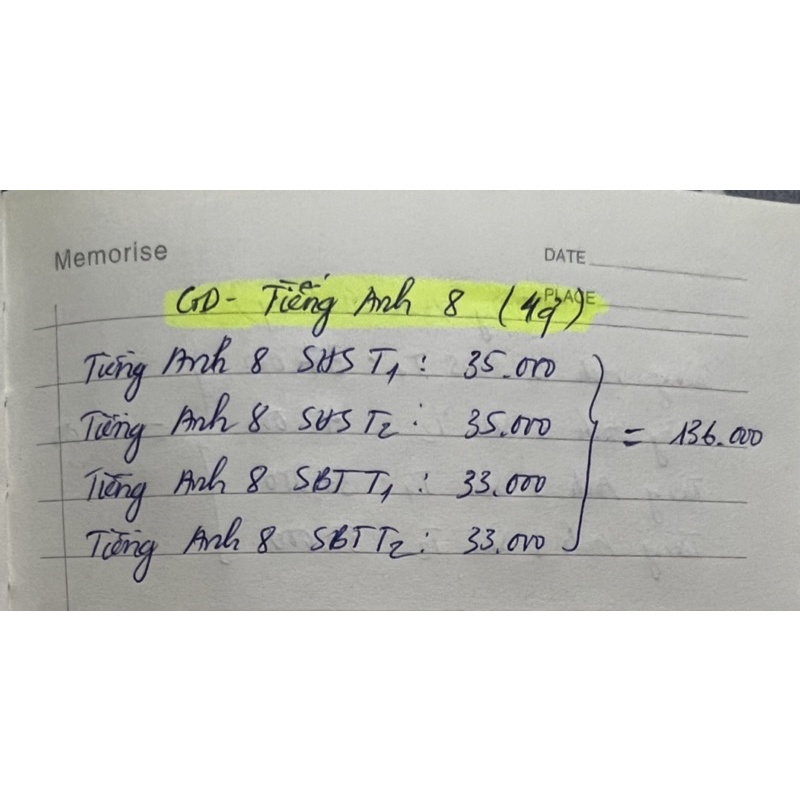 Memorise
DATE
PLACE
GD - Tiếng Anh 8 (4q)
Tiếng Anh 8 SHS T1 : 35.000
Tiếng Anh 8 SHS T2 : 35.000
Tiếng Anh 8 SBT T1 : 33.000
Tiếng Anh 8 SBT T2 : 33.000
= 136.000